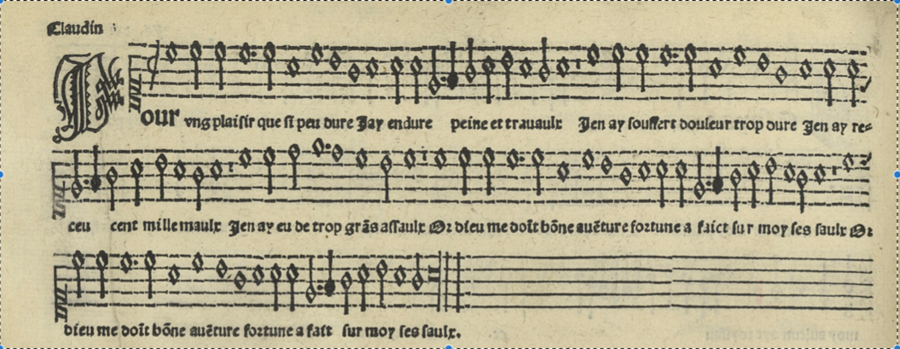 Claudin
Pour vng plaisir que si peu dure Jay endure peine et trauaulx Jen ay souffert douleur trop dure Jen ay re=
ceu cent mille maulx Jen ay eu de trop grās assaulx Or dieu me doīt bōne auēture fortune a faict sur moy ses saulx Or
dieu me doīt bōne auēture fortune a fait sur moy ses saulx.